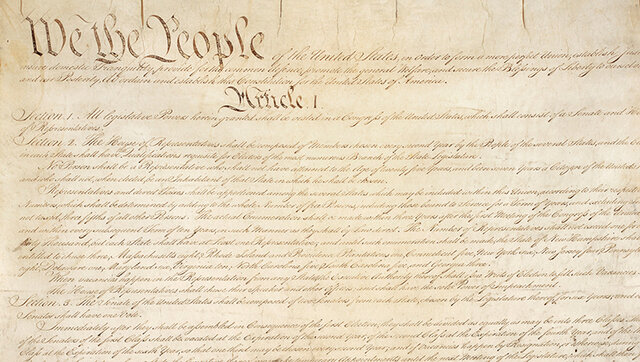 We the People of the United States, in order to form a more perfect Union, establish
insure domestic Tranquility, provide for the common defence, promote the general Welfare, and secure the Blessings of Liberty to
and our Posterity, do ordain and establish this Constitution for the United States of America.
Article. I.
Section. 1. All legislative Powers herein granted shall be vested in a Congress of the United States, which shall consist of a Senate and
of Representatives.
Section. 2. The House of Representatives shall be composed of Members chosen every second Year by the People of the several States, and the
in each State shall have Qualifications requisite for Electors of the most numerous Branch of the State Legislature.
No Person shall be a Representative who shall not have attained to the Age of twenty five Years, and been seven Years a Citizen of the United
and who shall not, when elected, be an Inhabitant of that State in which he shall be chosen.
Representatives and direct Taxes shall be apportioned among the several States which may be included within this Union, according to their
Numbers, which shall be determined by adding to the whole Number of free Persons, including those bound to Service for a Term of Years, and
not taxed, three fifths of all other Persons. The actual Enumeration shall be made within three Years after the first Meeting of the Congress of the United
and within every subsequent Term of ten Years, in such Manner as they shall by Law direct. The Number of Representatives shall not exceed one for
thirty Thousand, but each State shall have at Least one Representative; and until such enumeration shall be made, the State of New Hampshire shall
entitled to chuse three, Massachusetts eight, Rhode Island and Providence Plantations one, Connecticut five, New York six, New Jersey four,
eight, Delaware one, Maryland six, Virginia ten, North Carolina five, South Carolina five, and Georgia three.
When vacancies happen in the Representation from any State, the Executive Authority thereof shall issue Writs of Election to fill such Vacancies.
The House of Representatives shall chuse their Speaker and other Officers; and shall have the sole Power of Impeachment.
Section. 3. The Senate of the United States shall be composed of two Senators from each State, chosen by the Legislature thereof, for six Years; and
Senator shall have one Vote.
Immediately after they shall be assembled in Consequence of the first Election, they shall be divided as equally as may be into three Classes.
of the Senators of the first Class shall be vacated at the Expiration of the second Year, of the second Class at the Expiration of the fourth Year, and of the
Class at the Expiration of the sixth Year, so that one third may be chosen every second Year; and if Vacancies happen by Resignation, or otherwise,